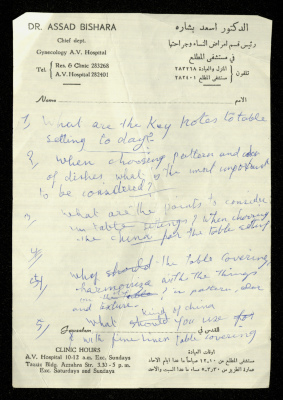 DR. ASSAD BISHARA
Chief dept.
Gynecology A.V. Hospital
Tel. { Res. & Clinic 283268
A.V. Hospital 282401
الدكتور اسعد بشاره
رئيس قسم امراض النساء وجراحتها
في مستشفى المطلع
تلفون { المنزل والعيادة ٢٨٣٢٦٨
مستشفى المطلع ٢٨٢٤٠١
Name الاسم
1, What are the Key Notes to table
setting to day?
2, when choosing pattern and
of dishes what is the most important
to be considered?
3, what are the points to consider
in table settings? When choosing
the china for the table setting
4,
why should the table covering
harmonize with the things
in pattern, color
and texture
kind of china
5, what should you use for
with fine linen table covering
Jerusalem القدس في
CLINIC HOURS
A.V. Hospital 10-12 a.m. Exc. Sundays
Tannis Bldg. Azzahra Str. 3.30 - 5 p.m.
Exc. Saturdays and Sundays
اوقات العيادة
مستشفى المطلع من ١٠-١٢ صباحاً ما عدا ايام الاحاد